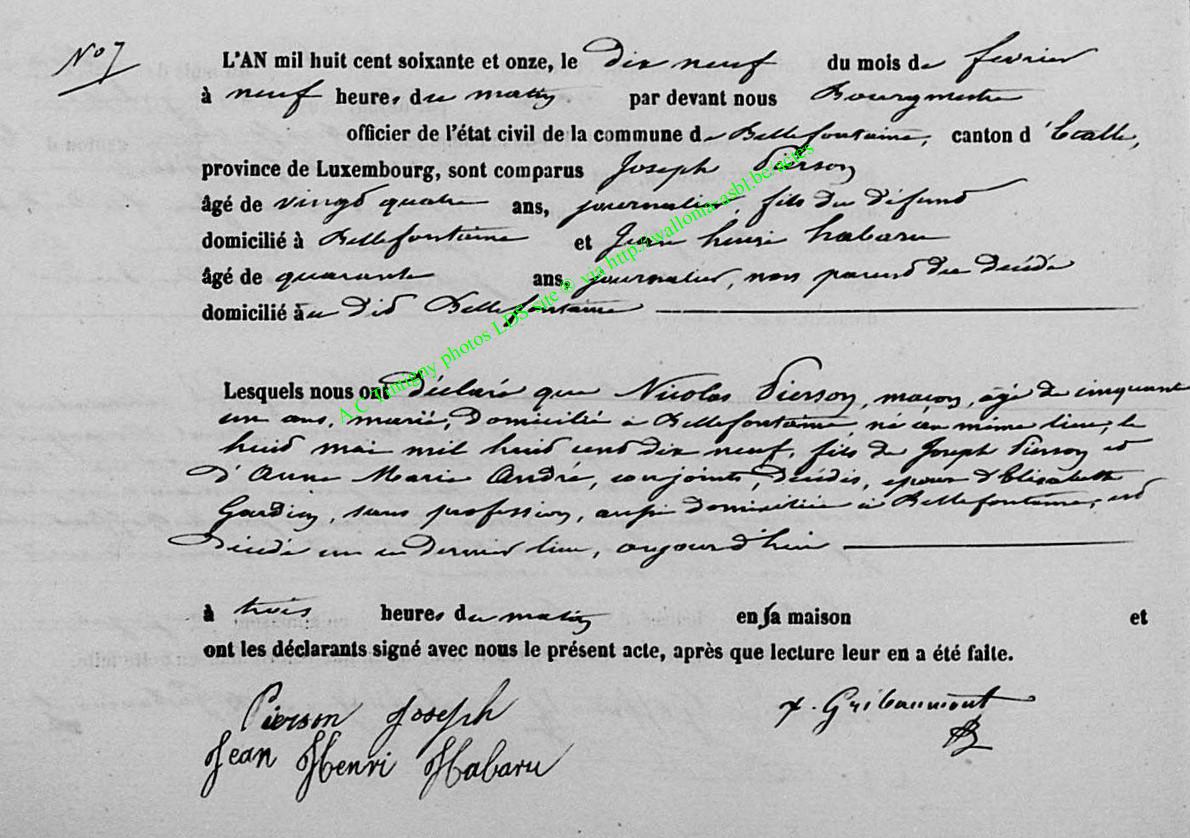 No 7
L'AN mil huit cent soixante et onze, le dix neuf du mois de fevrier
à neuf heures du matin par devant nous Bourgmestre
officier de l'état civil de la commune de Bellefontaine, canton d'Etalle,
province de Luxembourg, sont comparus Joseph Pierson
âgé de vingt quatre ans, journalier, fils du défunt
domicilié à Bellefontaine et Jean henri habaru
âgé de quarante ans, journalier, non parent du décédé
domicilié au dit Bellefontaine
Lesquels nous ont déclaré que Nicolas Pierson, maçon, âgé de cinquante
un ans, marié, domicilié à Bellefontaine, né au même lieu, le
huit mai mil huit cent dix neuf, fils de Joseph Pierson et
d'Anne Marie André, conjoints, décédés, époux d'Elisabeth
sans profession, aussi domiciliée à Bellefontaine, est
décédé en ce dernier lieu, aujourd'hui
à trois heures du matin en sa maison et
ont les déclarants signé avec nous le présent acte, après que lecture leur en a été faite.
Pierson Joseph
Jean Henri Habaru
Gribaumont
A.C. Tintigny photos LDS site © via http://wallonia-asbl.be/actes